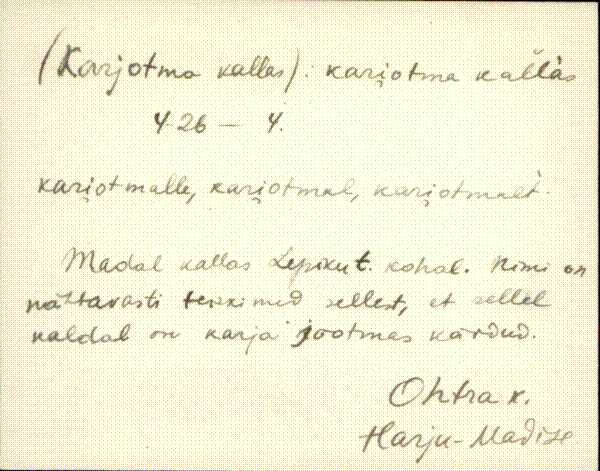 (Karjotma kallas): kari̯otma kallàs
4-26 — 4.
kari̯otmalle, kari̯otmal, kari̯otmalt.
Madal kallas Lepiku t. kohal. Nimi on
nähtavasti tekkinud sellest, et sellel
kaldal on karja jootmas käidud.
Ohtra k.
Harju-Madise